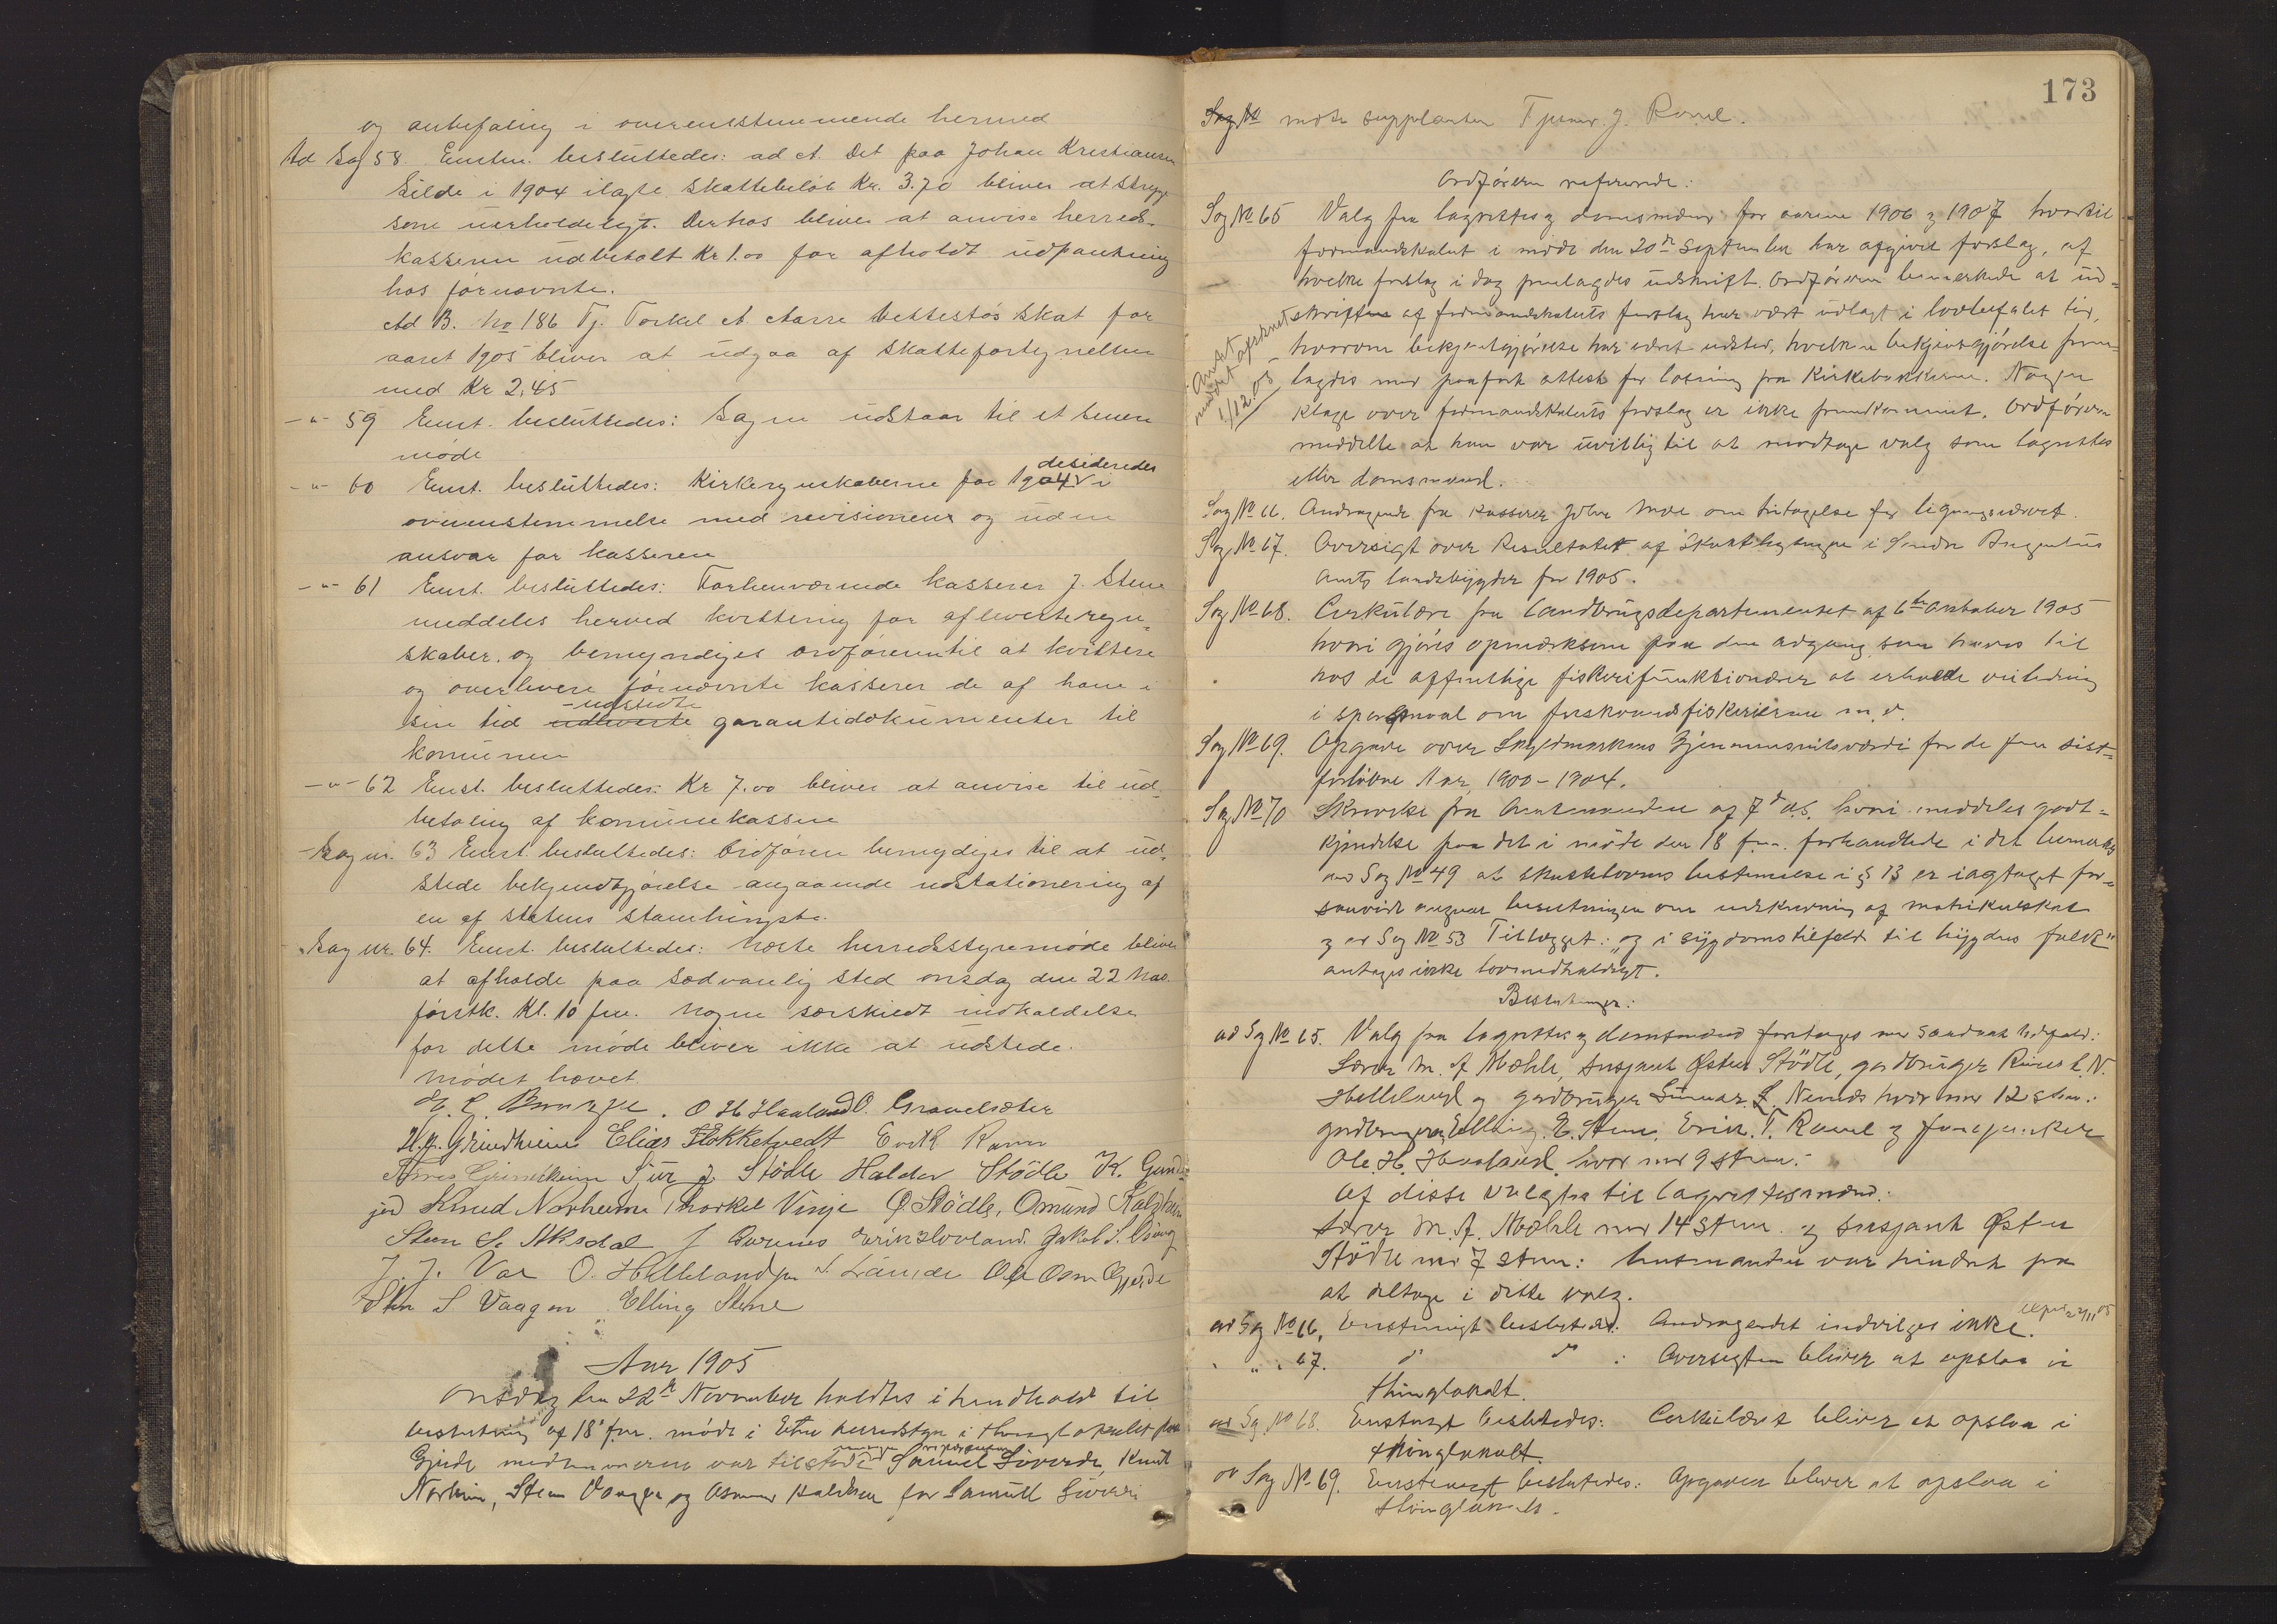 og anbefaling i overensstemmende hermed
Ad Sag 58. Enst. besluttedes: ad A. Det paa Johan Kristiansen
Silde i 1904 ilagte skattebeløb Kr. 3.70 bliver at stryge
som uerholdeligt. Derhos bliver at anvise herreds-
kasseren udbetalt Kr 1.00 for afholdt udpantning
hos førnævnte.
Ad B. No 186 Tj. Torkel A. Aarre Bettestøs Skat for
aaret 1905 bliver at udgaa af Skattefortegnelsen
med Kr 2,45
-"- 59 Enst. besluttedes: Sagen udstaar til et senere
møde
-"- 60 Enst. besluttedes: Kirkeregnskaberne for 1904 desideredes i
overenstemmelse med revisionens og uden
ansvar for kasseren
-"- 61 Enst. besluttedes: Forhenværende kasserer J. Stene
meddeles herved kvittering for afleverte regn-
skaber. og bemyndiges ordføreren til at kvittere
og overlevere førnævnte kasserer de af ham i
sin tid udleverte udstedte garantidokumenter til
komunen
-"- 62 Enst. besluttedes: Kr 7.00 bliver at anvise til ud-
betaling af komunekassen
Sag nr. 63 Enst. besluttedes: Ordføren bemydiges til at ud-
stede bekjendtgjørelse angaaende udstationering af
en af statens stamhingste.
Sag nr. 64. Enst. besluttedes: Næste herredsstyremøde bliver
at afholde paa sædvanlig sted onsdag den 22 Nov.
førstk. Kl. 10 fm. Nogen særskildt indkaldelse
for dette møde bliver ikke at udstede.
Mødet hævet
O H Haaland O. Gravelsæter
Grindheim Elias Flokketvedt Erik Ravn
Grindheim Sjur J. Stødle Haldor Stødle K. Gunde-
jerd Knud Norheim Thorkel Vinje Ø Stødle, Omund
Steen S. Aksdal J Erik Hovland. Jakob S.
J. J. Vae O. Helleland Ole Osm Gjerde
Sten S Vaagen Elling Stene
Aar 1905
Onsdag den 22de November holdtes i henhold til
beslutning af 18de f.m. møde i Etne herredstyre i thinglokalet paa
Gjerde medlemmerne var tilstede Samuel Silverde, Knut
Norheim, Sten Vaage og for Samuel
173
Sag No møtte supplanten J. Ravel.
Ordføreren refererede:
Sag No 65 Valg paa lagrettes og domsmænd for aarene 1906 og 1907 hvortil
formandskabet i møde den 20de September har afgivet forslag, af
hvilke forslag i dag fremlagdes udskrift. Ordføreren bemærkede at ud-
skriften af formandskabets forslag har vært udlagt i lovbefalet tid,
hvorom bekjentgjørelse har været udsted, hvilken bekjentgjørelse frem-
lagdes med paaført attest for læsning fra Kirkebakkerne. Nogen
klage over formandskabets forslag er ikke fremkommet. Ordføreren
meddelte at han var uvillig til at modtage valg som lagrettes
eller domsmand.
1/12 05
Sag No 66. Andragende fra kasserer John Moe om fritagelse for ligningsarbeid.
Sag No 67. Oversigt over Resultatet af Skatligningen i Søndre Bergenhus
Amts landsbygder for 1905.
Sag No 68. Cirkulære fra Landbrugsdepartementet af 6te Oktober 1905
hvori gjøres opmærksom paa den adgang som haves til
hos de offentlige fiskerifunktionærer at erholde veiledning
i spørsmaal om ferskvandsfiskerierne m.v.
Sag No 69. Opgave over Gjennemsnitsværdi for de fem sidst-
forløbne Aar, 1900-1904.
Sag No 70 Skrivelse fra Amtmanden af 7de d.s. hvori meddeles godt-
kjendelse paa det i møde den 18 f.m. forhandlede i det bemærkes
ad Sag No 49 at skattelovens bestemmelse i § 13 er iagttaget for-
saavidt angaar beslutningen om udskrivning af matrikulskat
og ad Sag No 53 Tillægget: "og i sygdomstilfælde til bygdens folk"
antages ikke lovmedholdigt.
Beslutninger:
ad Sag No 65. Valg paa lagrettes og domsmænd foretages med saadant udfald:
Lærer M. A. Mæhle, Østen Stødle, gardbruger L. N.
Helleland og gardbruger L. Nernæs hver med 12 stem.:
gardbrugerne Elling E. Stene, Erik T. Ravel og
Ole. H. Haaland, hver med 9 stem:
Af disse valgtes til lagrettesmænd:
Lærer M. A. Mæhle med 14 stem. og Østen
Stødle med 7 stem: var hindret fra
at deltage i dette valg.
ad Sag No 66, Enstemigt besluttedes: Andragendet indvilges ikke.
" " 67. do do : Oversigten bliver at opslaa i
thinglokalet.
ad Sag No 68. Enstemigt besluttedes: Cirkulæret bliver at opslaa i
thinglokalet.
ad Sag No 69. Enstemigt besluttedes: Opgaven bliver at opslaa i
thinglokalet.